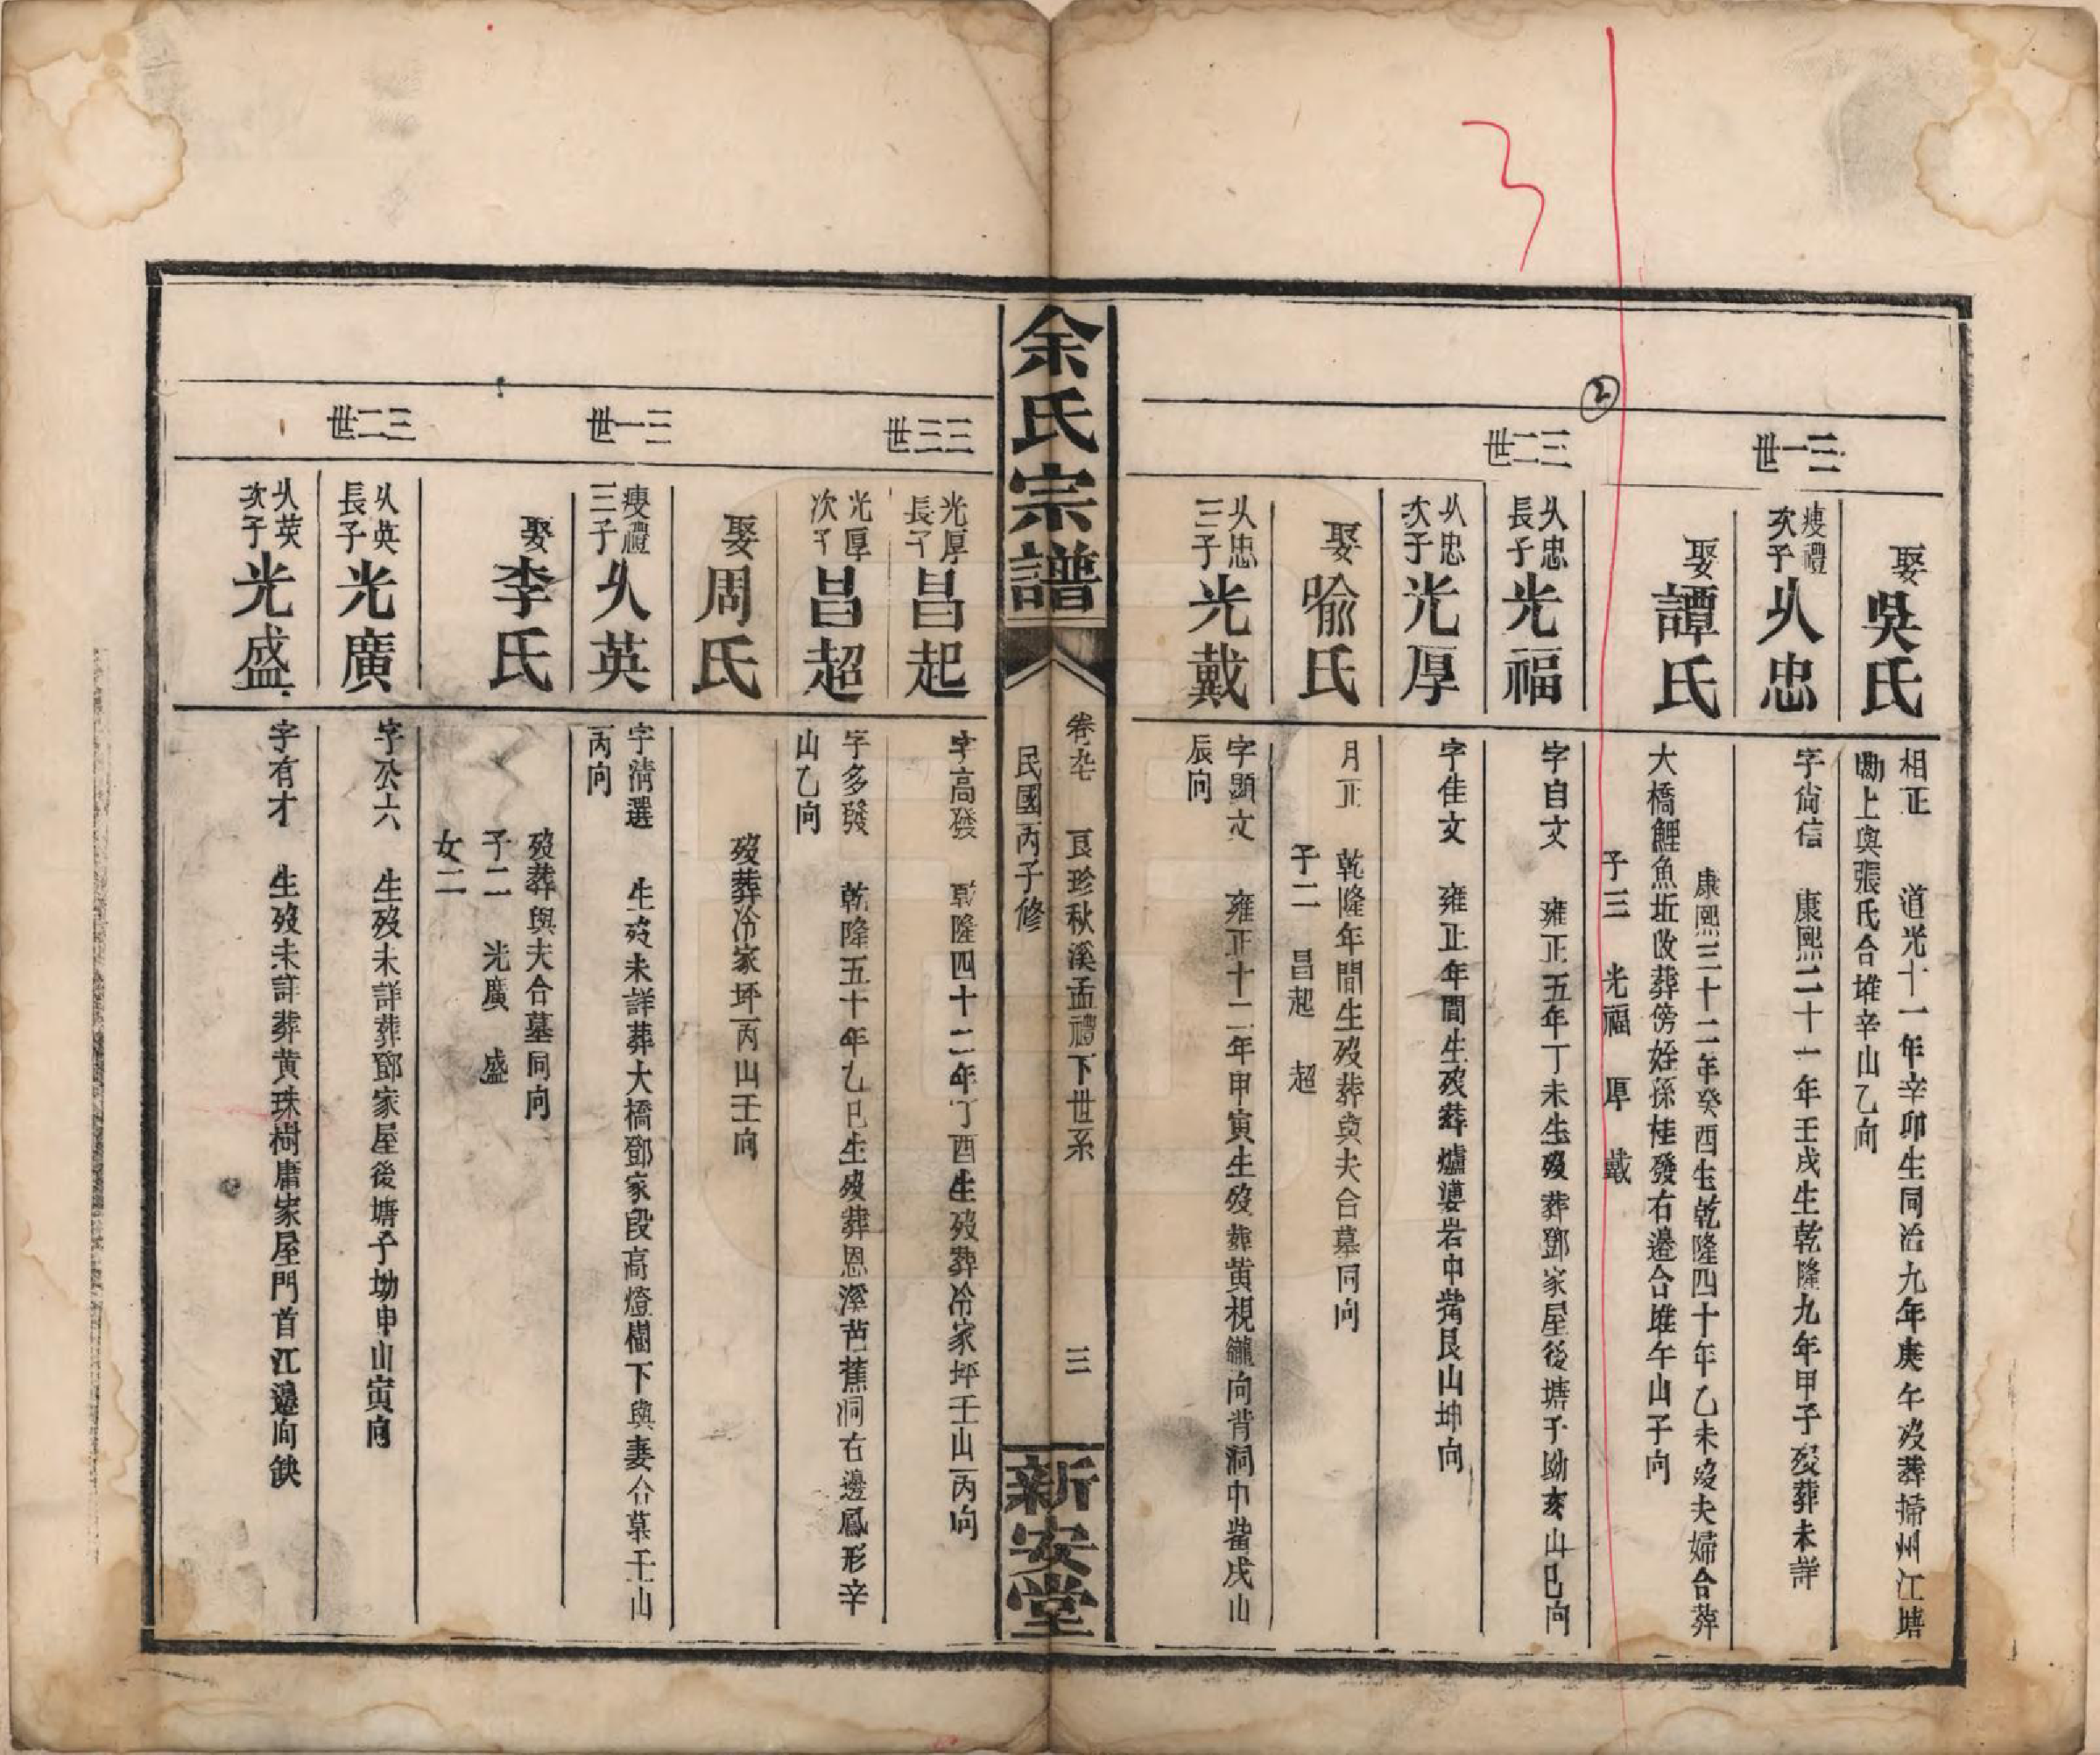 娶吳氏
相正 道光十一年辛卯生同治九年庚午歿葬掃州江塘
勘上與張氏合堆辛山乙向
三一世
瘦禮次子 乆忠
字尙信 康熙二十一年壬戌生乾隆九年甲子歿葬未詳
娶譚氏
康熙三十二年癸酉生乾隆四十年乙未歿夫婦合葬
大橋鯉魚坵改葬傍姪孫桂發右邊合堆午山子向
子三 光福 厚 戴
②
三二世
乆忠長子 光福
字自文 雍正五年丁未生歿葬鄧家屋後塘子坳亥山巳向
乆忠次子 光厚
字佳文 雍正年間生歿葬爐婆岩中嘴艮山坤向
娶喻氏
月正 乾隆年間生歿葬與夫合墓同向
子二 昌起 超
乆忠三子 光戴
字顯文 雍正十二年甲寅生歿葬黄梘 向背洞中嘴戌山
辰向
余氏宗譜
卷 艮珍秋溪孟禮下世系 三
民國丙子修
新安堂
三三世
光厚長子 昌起
字高發 乾隆四十二年丁酉生歿葬冷家坪壬山丙向
光厚次子 昌超
字多發 乾隆五十年乙巳生歿葬恩溪芭蕉洞右邊鳳形辛
山乙向
娶周氏
歿葬冷家坪丙山壬向
三一世
瘦禮三子 乆英
字淸選 生歿未詳葬大橋鄧家段高燈樹下與妻合墓壬山
丙向
娶李氏
歿葬與夫合墓同向
子二 光廣 盛
女二
三二世
乆英長子 光廣
字公六 生歿未詳葬鄧家屋後塘子坳申山寅向
乆英次子 光盛
字有才 生歿未詳葬黄珠樹唐家屋門首江邊向缺